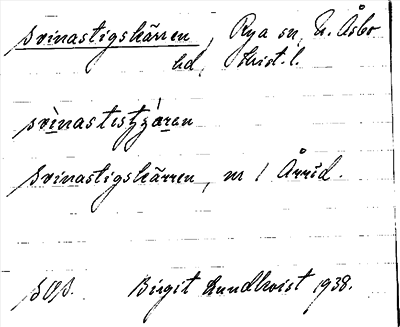 Svinastigskärren, Rya sn, N. Åsbo
hd, Krist. l.
svinastisʒɟáran
Svinastigskärren, nr 1 Årröd.
Birgit Lundkvist 1938.